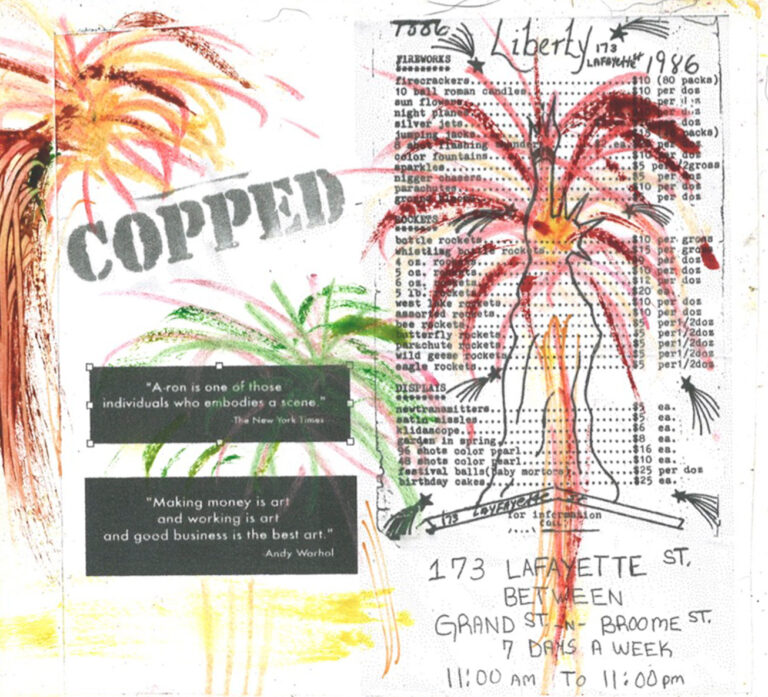 COPPED
"A-ron is one of those
individuals who embodies a scene."
-The New York Times
"Making money is art
and working is art
and good business is the best art."
-Andy Warhol
Liberty 173
LAFAYETTE ST 1986
FIREWORKS
firecrackers $10 (80 packs)
10 ball roman candles $10 per dos
sun flowers
night planes
silver jets
jumping jacks packs)
8 shot flashing ea.
color fountains per dos
sparkles $5 per/2gross
nigger chasers $5 per
parachutes $10 per dos
per dos
ROCKETS
bottle rockets $10 per gross
whistling bottle rockets per gross
4 oz. rockets per dos
5 oz. per dos
6 oz. rockets per dos
5 lb. rockets $20 ea
west lake rockets $10 per dos
assorted rockets $10 per dos
bee rockets $5 per1/2doz
butterfly rockets $5 per1/2doz
parachute rockets $5 per1/2doz
wild geese rockets $5 per1/2doz
eagle rockets $5 per1/2doz
DISPLAYS
newtransmitters $5 ea.
satin missles $5 ea.
klidascope $6 ea.
garden in spring $8 ea.
96 shots color pearl $16 ea.
48 shots color pearl $10 ea.
festival balls(baby mortors) $25 per dos
birthday cakes $25 ea.
173 LAYFAYETTE ST
for information
173 LAFAYETTE ST.
BETWEEN
GRAND ST -N- BROOME ST.
7 DAYS A WEEK
11:00 AM TO 11:00 pm